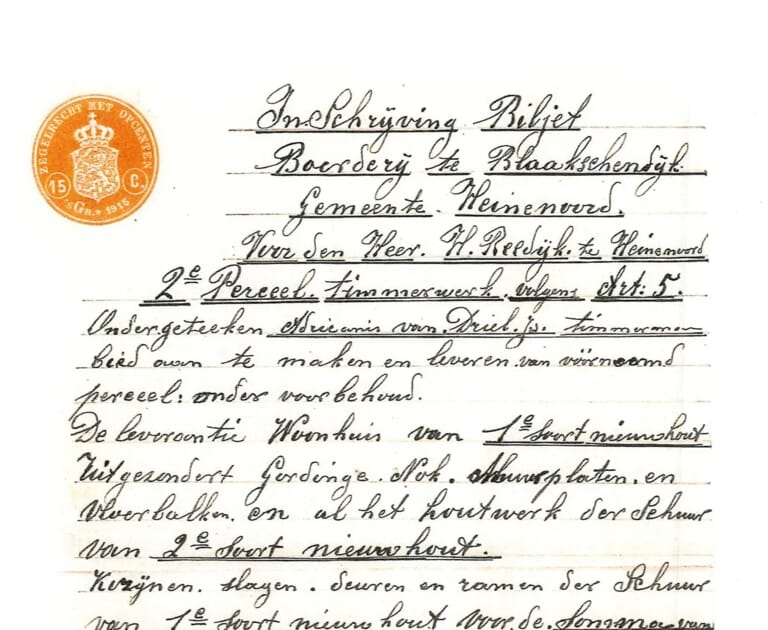 ZEGELRECHT MET OPCENTEN
15 C.
'sGR. * 1915
InSchrijving Biljet
Boerderij te Blaakschendijk.
Gemeente. Heinenoord.
Voor den Heer. H. Reedijk. te Heinenoord
2e Perceel. timmerwerk. volgens Art: 5.
Ondergeteeken Adrieanis van. Driel. Jz. timmerman
bied aan te maken en leveren van vöörnoemd
perceel: onder voorbehoud.
De leverantie Woonhuis van 1e soort nieuwhout
Uitgezondert Gordinge. Nok. Muurplaten. en
vloerbalken. en al het houtwerk der Schuur
van 2e soort nieuwhout.
Kozijnen. slagen. deuren en ramen der Schuur
van 1e soort nieuwhout voor. de. Somma van